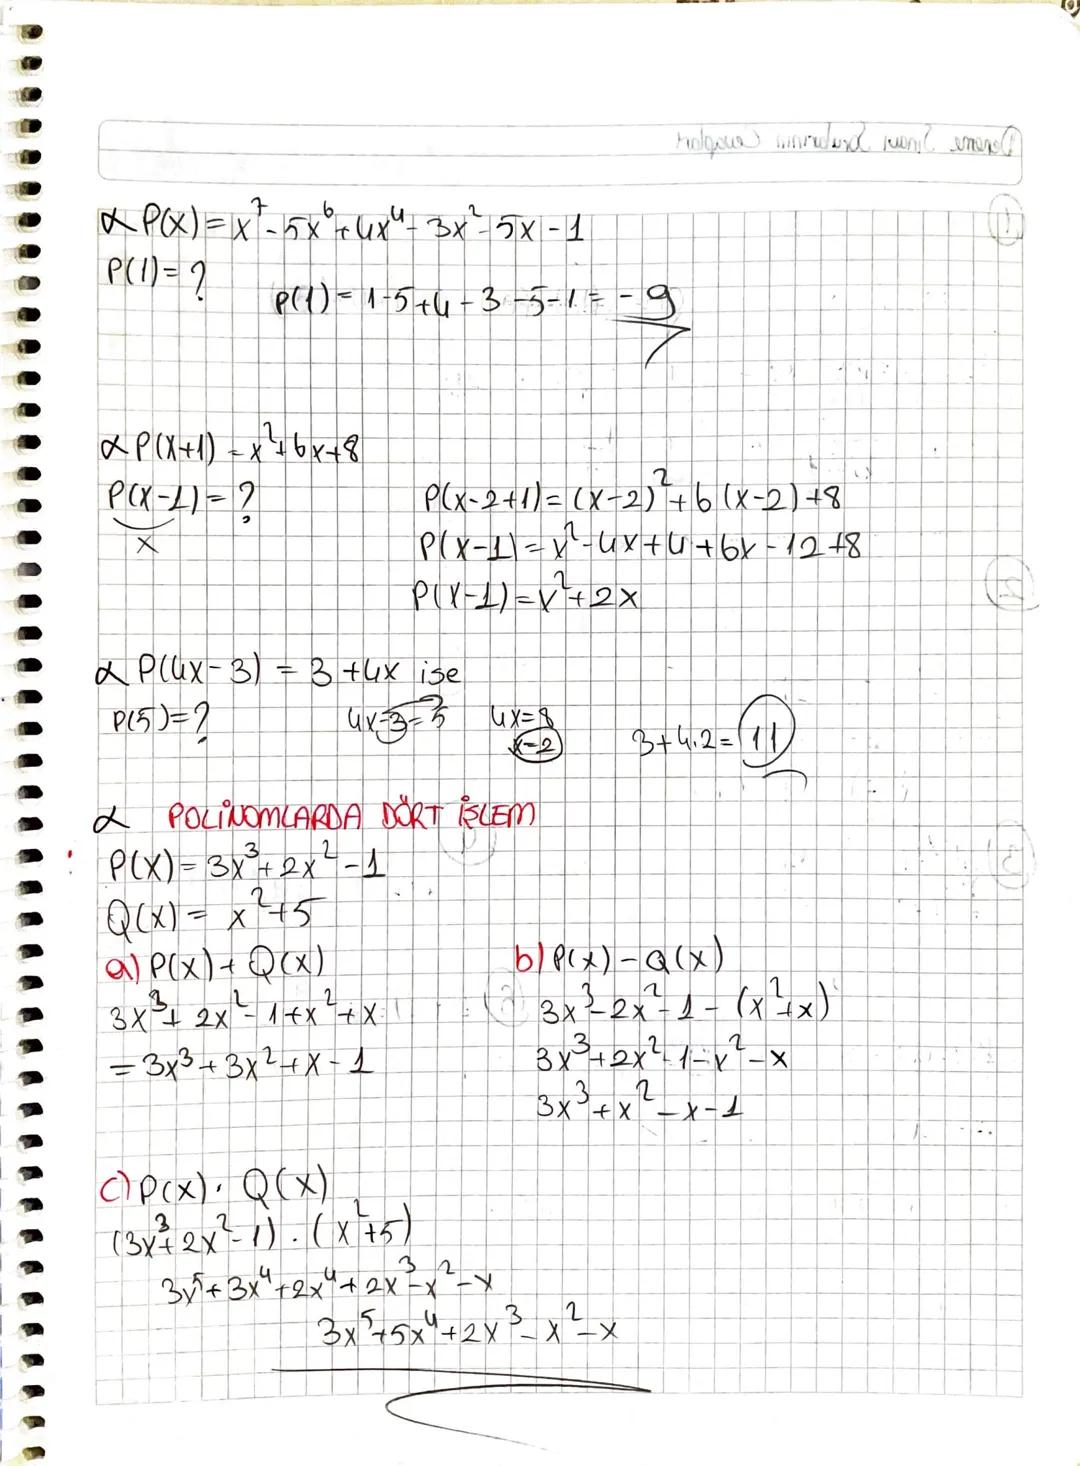 α P(x) = x⁷ - 5x⁶ + 4x⁴ - 3x² - 5x - 1
P(1) = ?
P(1) = 1-5+4-3-5-1 = -9
α P(x+1) = x²+6x+8
P(x-1) = ?
x
P(x-2+1) = (x-2)² + 6(x-2)+8
P(x-1) = x²-4x+4+6x-12+8
P(x-1) = x²+2x
α P(4x-3) = 3+4x ise
P(5) = ?
4x-3=5 4x=8
x=2
3+4.2= 11
α POLİNOMLARDA DÖRT İŞLEM
P(x) = 3x³+2x²-1
Q(x) = x²+5
a) P(x) + Q(x)
3x³+2x²-1+x²+x
= 3x³+3x²+x-1
b) P(x) - Q(x)
3x³-2x²-1-(x²+x)
3x³+2x²-1-x²-x
3x³+x²-x-1
c) P(x) . Q(x)
(3x³+2x²-1) . (x²+5)
3x⁵+3x⁴+2x⁴+2x³-x²-x
3x⁵+5x⁴+2x³-x²-x